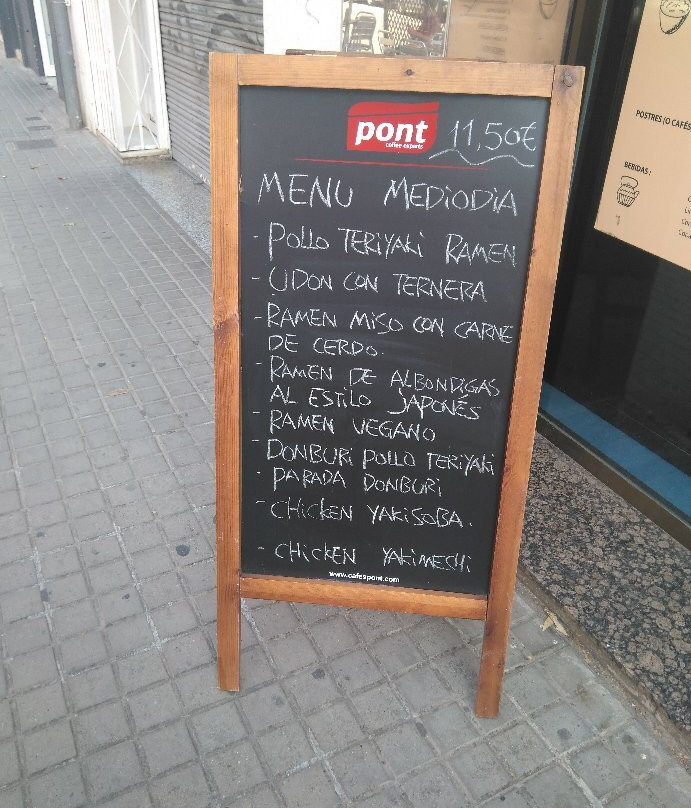 pont
coffee experts
11,50€
MENU MEDIODIA
- POLLO TERIYAKI RAMEN
- UDON CON TERNERA
- RAMEN MISO CON CARNE
DE CERDO.
- RAMEN DE ALBONDIGAS
AL ESTILO JAPONÉS
- RAMEN VEGANO
- DONBURI POLLO TERIYAKI
- PARADA DONBURI
- CHICKEN YAKISOBA.
- CHICKEN YAKIMESHI
www.cafespont.com
POSTRES /O CAFÉS
BEBIDAS :